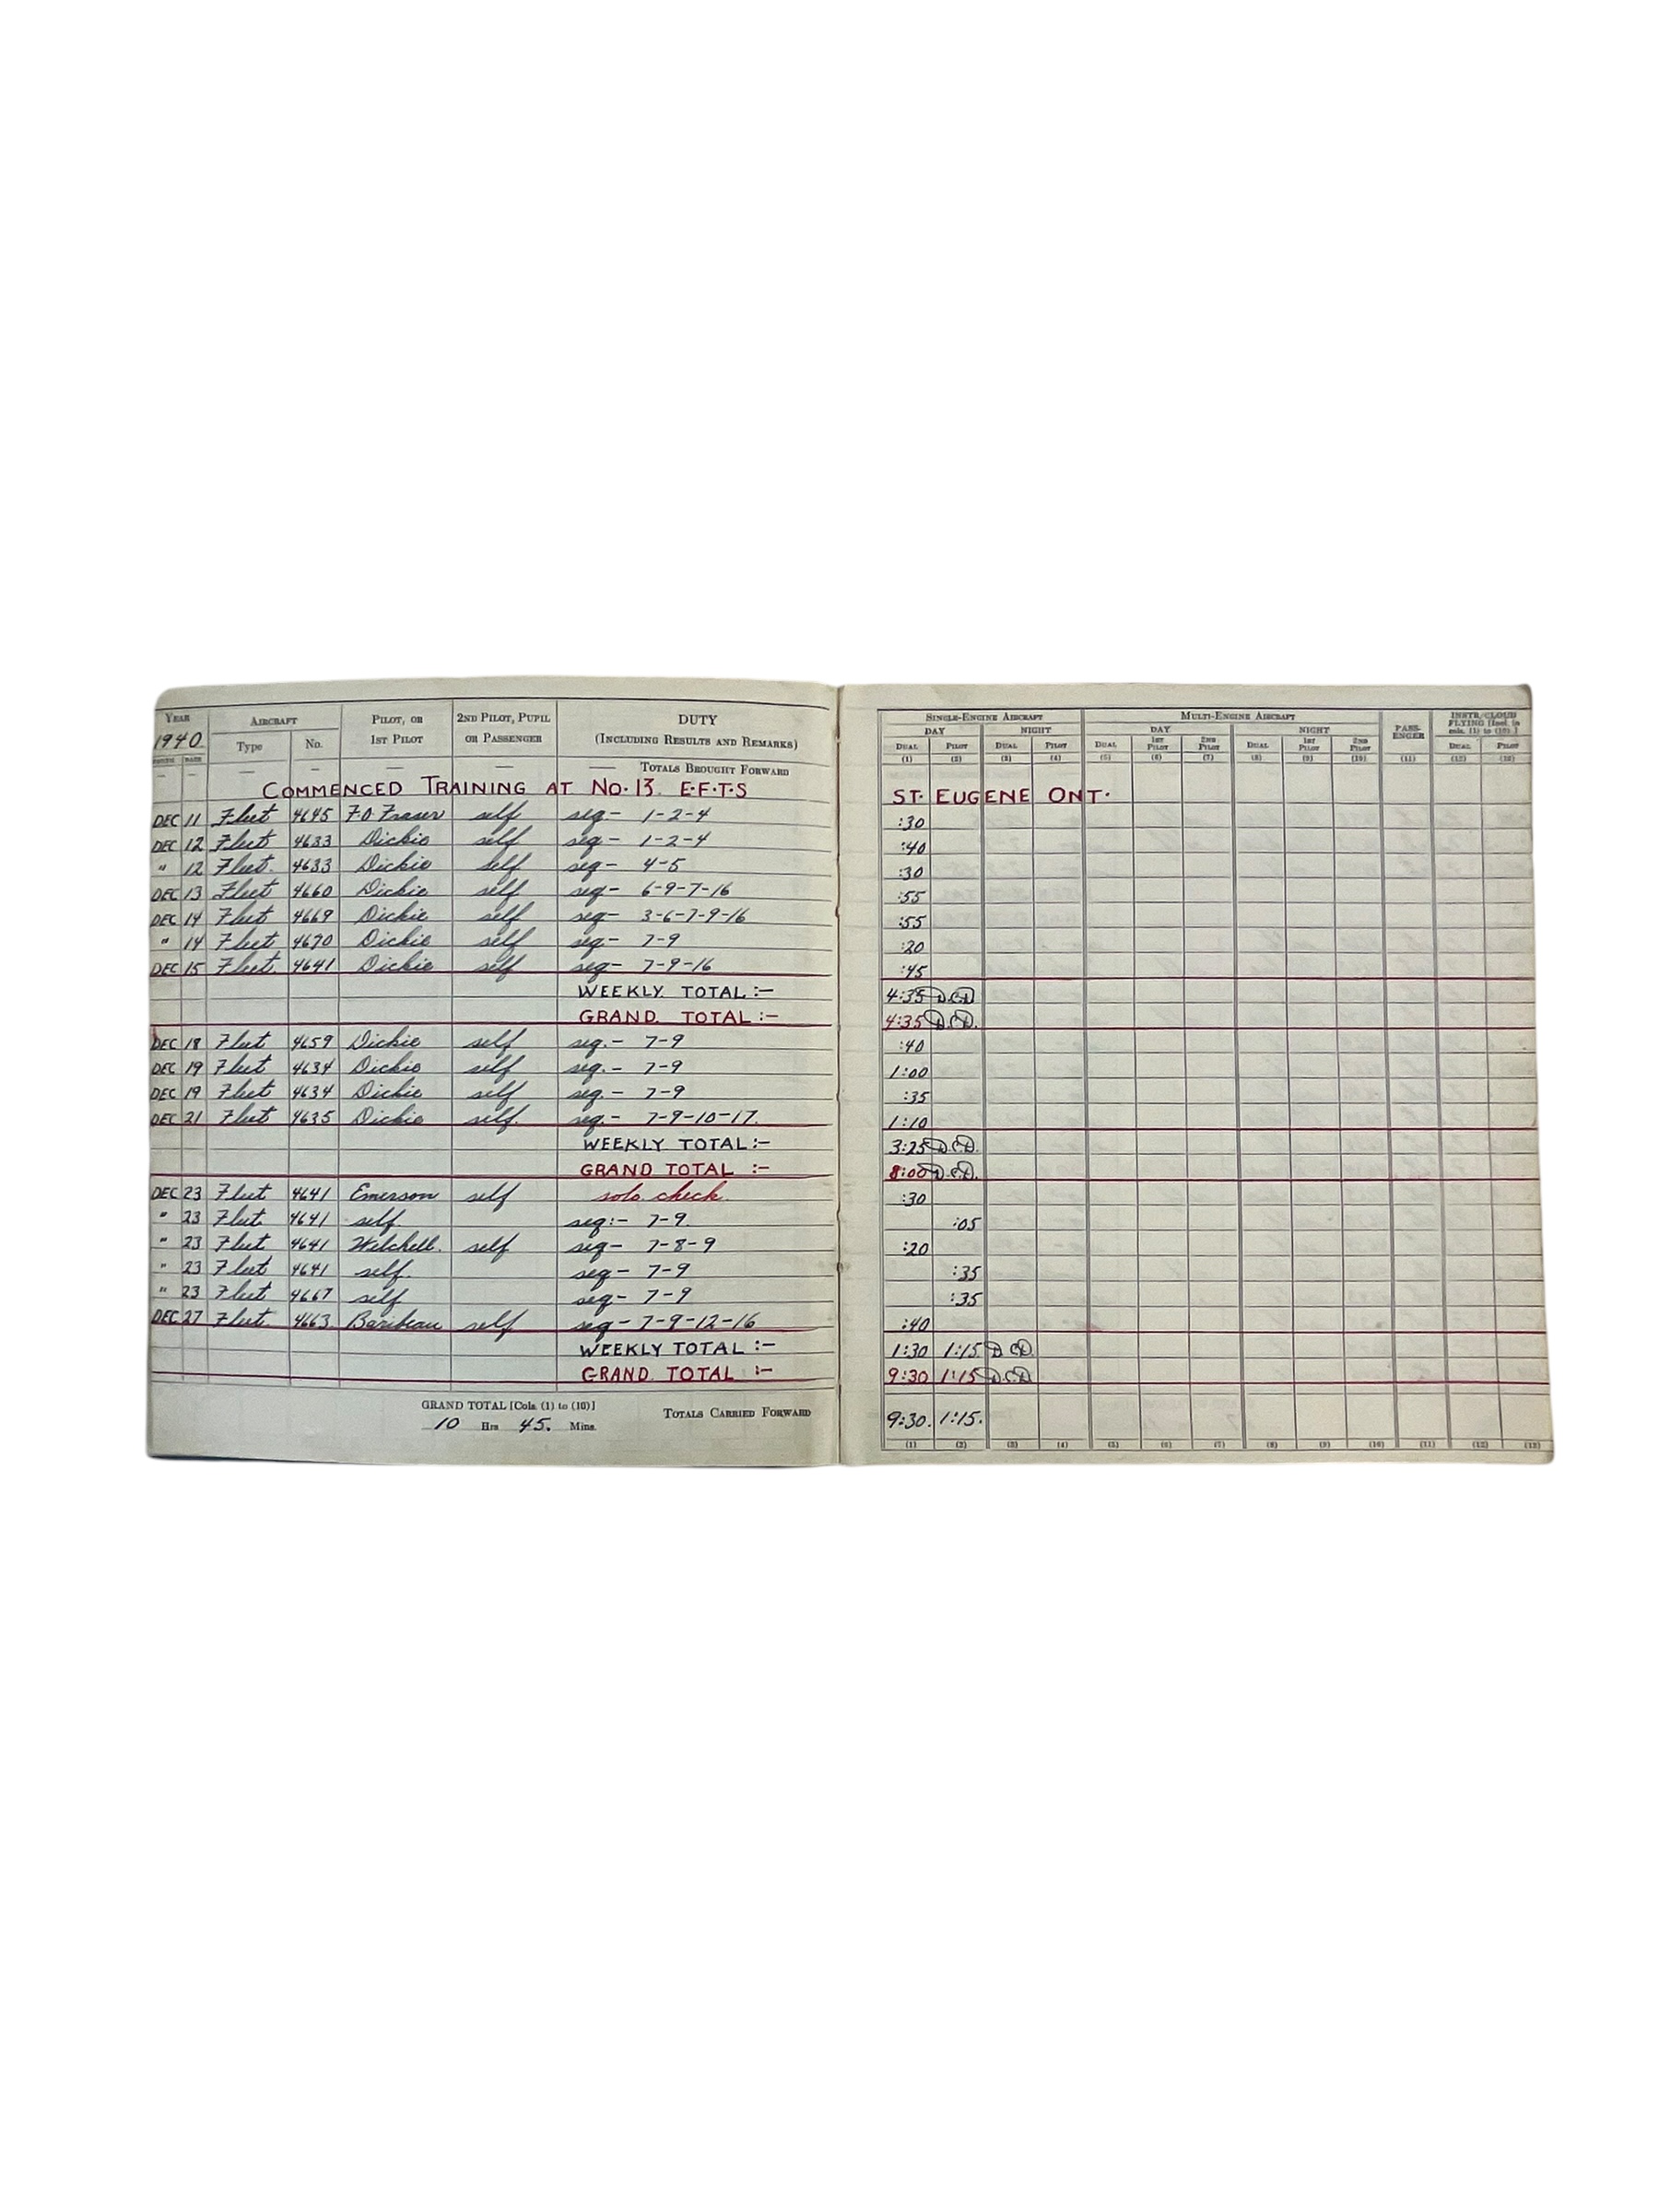 YEAR AIRCRAFT PILOT, OR 2ND PILOT, PUPIL DUTY SINGLE-ENGINE AIRCRAFT MULTI-ENGINE AIRCRAFT PASS-ENGER INSTR/CLOUD FLYING [Incl. in cols. (1) to (10)]
1940 Type No. 1ST PILOT OR PASSENGER (INCLUDING RESULTS AND REMARKS) DAY NIGHT DAY NIGHT
MONTH DATE DUAL PILOT DUAL PILOT DUAL 1ST PILOT 2ND PILOT DUAL 1ST PILOT 2ND PILOT DUAL PILOT
(1) (2) (3) (4) (5) (6) (7) (8) (9) (10) (11) (12) (13)
— — — — — — — TOTALS BROUGHT FORWARD
COMMENCED TRAINING AT NO. 13 E.F.T.S ST. EUGENE ONT.
DEC 11 Fleet 4645 F.O. Fraser self seq- 1-2-4 :30
DEC 12 Fleet 4633 Dickie self seq- 1-2-4 :40
" 12 Fleet. 4633 Dickie self seq- 4-5 :30
DEC 13 Fleet 4660 Dickie self seq- 6-9-7-16 :55
DEC 14 Fleet 4669 Dickie self seq- 3-6-7-9-16 :55
" 14 Fleet 4670 Dickie self seq- 7-9 :20
DEC 15 Fleet. 4641 Dickie self seq- 7-9-16 :45
WEEKLY TOTAL :- 4:35 D.C.D.
GRAND TOTAL :- 4:35 D.C.D.
DEC 18 Fleet 4659 Dickie self seq.- 7-9 :40
DEC 19 Fleet 4634 Dickie self seq.- 7-9 1:00
DEC 19 Fleet 4634 Dickie self seq.- 7-9 :35
DEC 21 Fleet 4635 Dickie self. seq.- 7-9-10-17. 1:10
WEEKLY TOTAL :- 3:25 D.C.D.
GRAND TOTAL :- 8:00 D.C.D.
DEC 23 Fleet 4641 Emerson self solo check. :30
" 23 Fleet 4641 self seq:- 7-9. :05
" 23 Fleet 4641 Welchell. self seq- 7-8-9 :20
" 23 Fleet 4641 self. seq- 7-9 :35
" 23 Fleet 4667 self seq- 7-9 :35
DEC 27 Fleet. 4663. Baribeau self seq- 7-9-12-16 :40
WEEKLY TOTAL :- 1:30 1:15 D.C.D.
GRAND TOTAL :- 9:30 1:15 D.C.D.
GRAND TOTAL [Cols. (1) to (10)]
10 Hrs 45. Mins. TOTALS CARRIED FORWARD 9:30. 1:15.
(1) (2) (3) (4) (5) (6) (7) (8) (9) (10) (11) (12) (13)